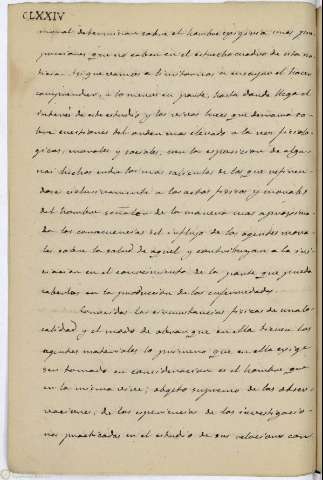 CLXXIV
moral determinan sobre el hombre exigiria unas pro
porciones que no caben en el estrecho cuadro de esta no
ticia. Asi que vamos a limitarnos a ensayar el hacer
comprender, a lo menos en parte, hasta donde llega el
interés de este estudio y las veras luces que derrama so
bre cuestiones del orden mas elevado a la vez, fisioló
gicas, morales y sociales, con la esposicion de algu
nos hechos entre los mas de los que refirien
dose esclusivamente a los actos fisicos y morales
del hombre señalan de la manera mas aprósima
da las consecuencias del influjo de los agentes mora
les sobre la salud de aquel y contribuyan a la ini
ciacion en el conocimiento de la parte que pueda
caberles en la produccion de las enfermedades.
Conocidas las circunstancias fisicas de una lo
calidad y el modo de obrar que en ella tienen los
agentes materiales lo primero que en ella exige
ser tomado en consideracion es el hombre que
en la misma vive; objeto supremo de las obser
vaciones, de las esperiencias, de las investigacio
nes practicadas en el estudio de sus relaciones con